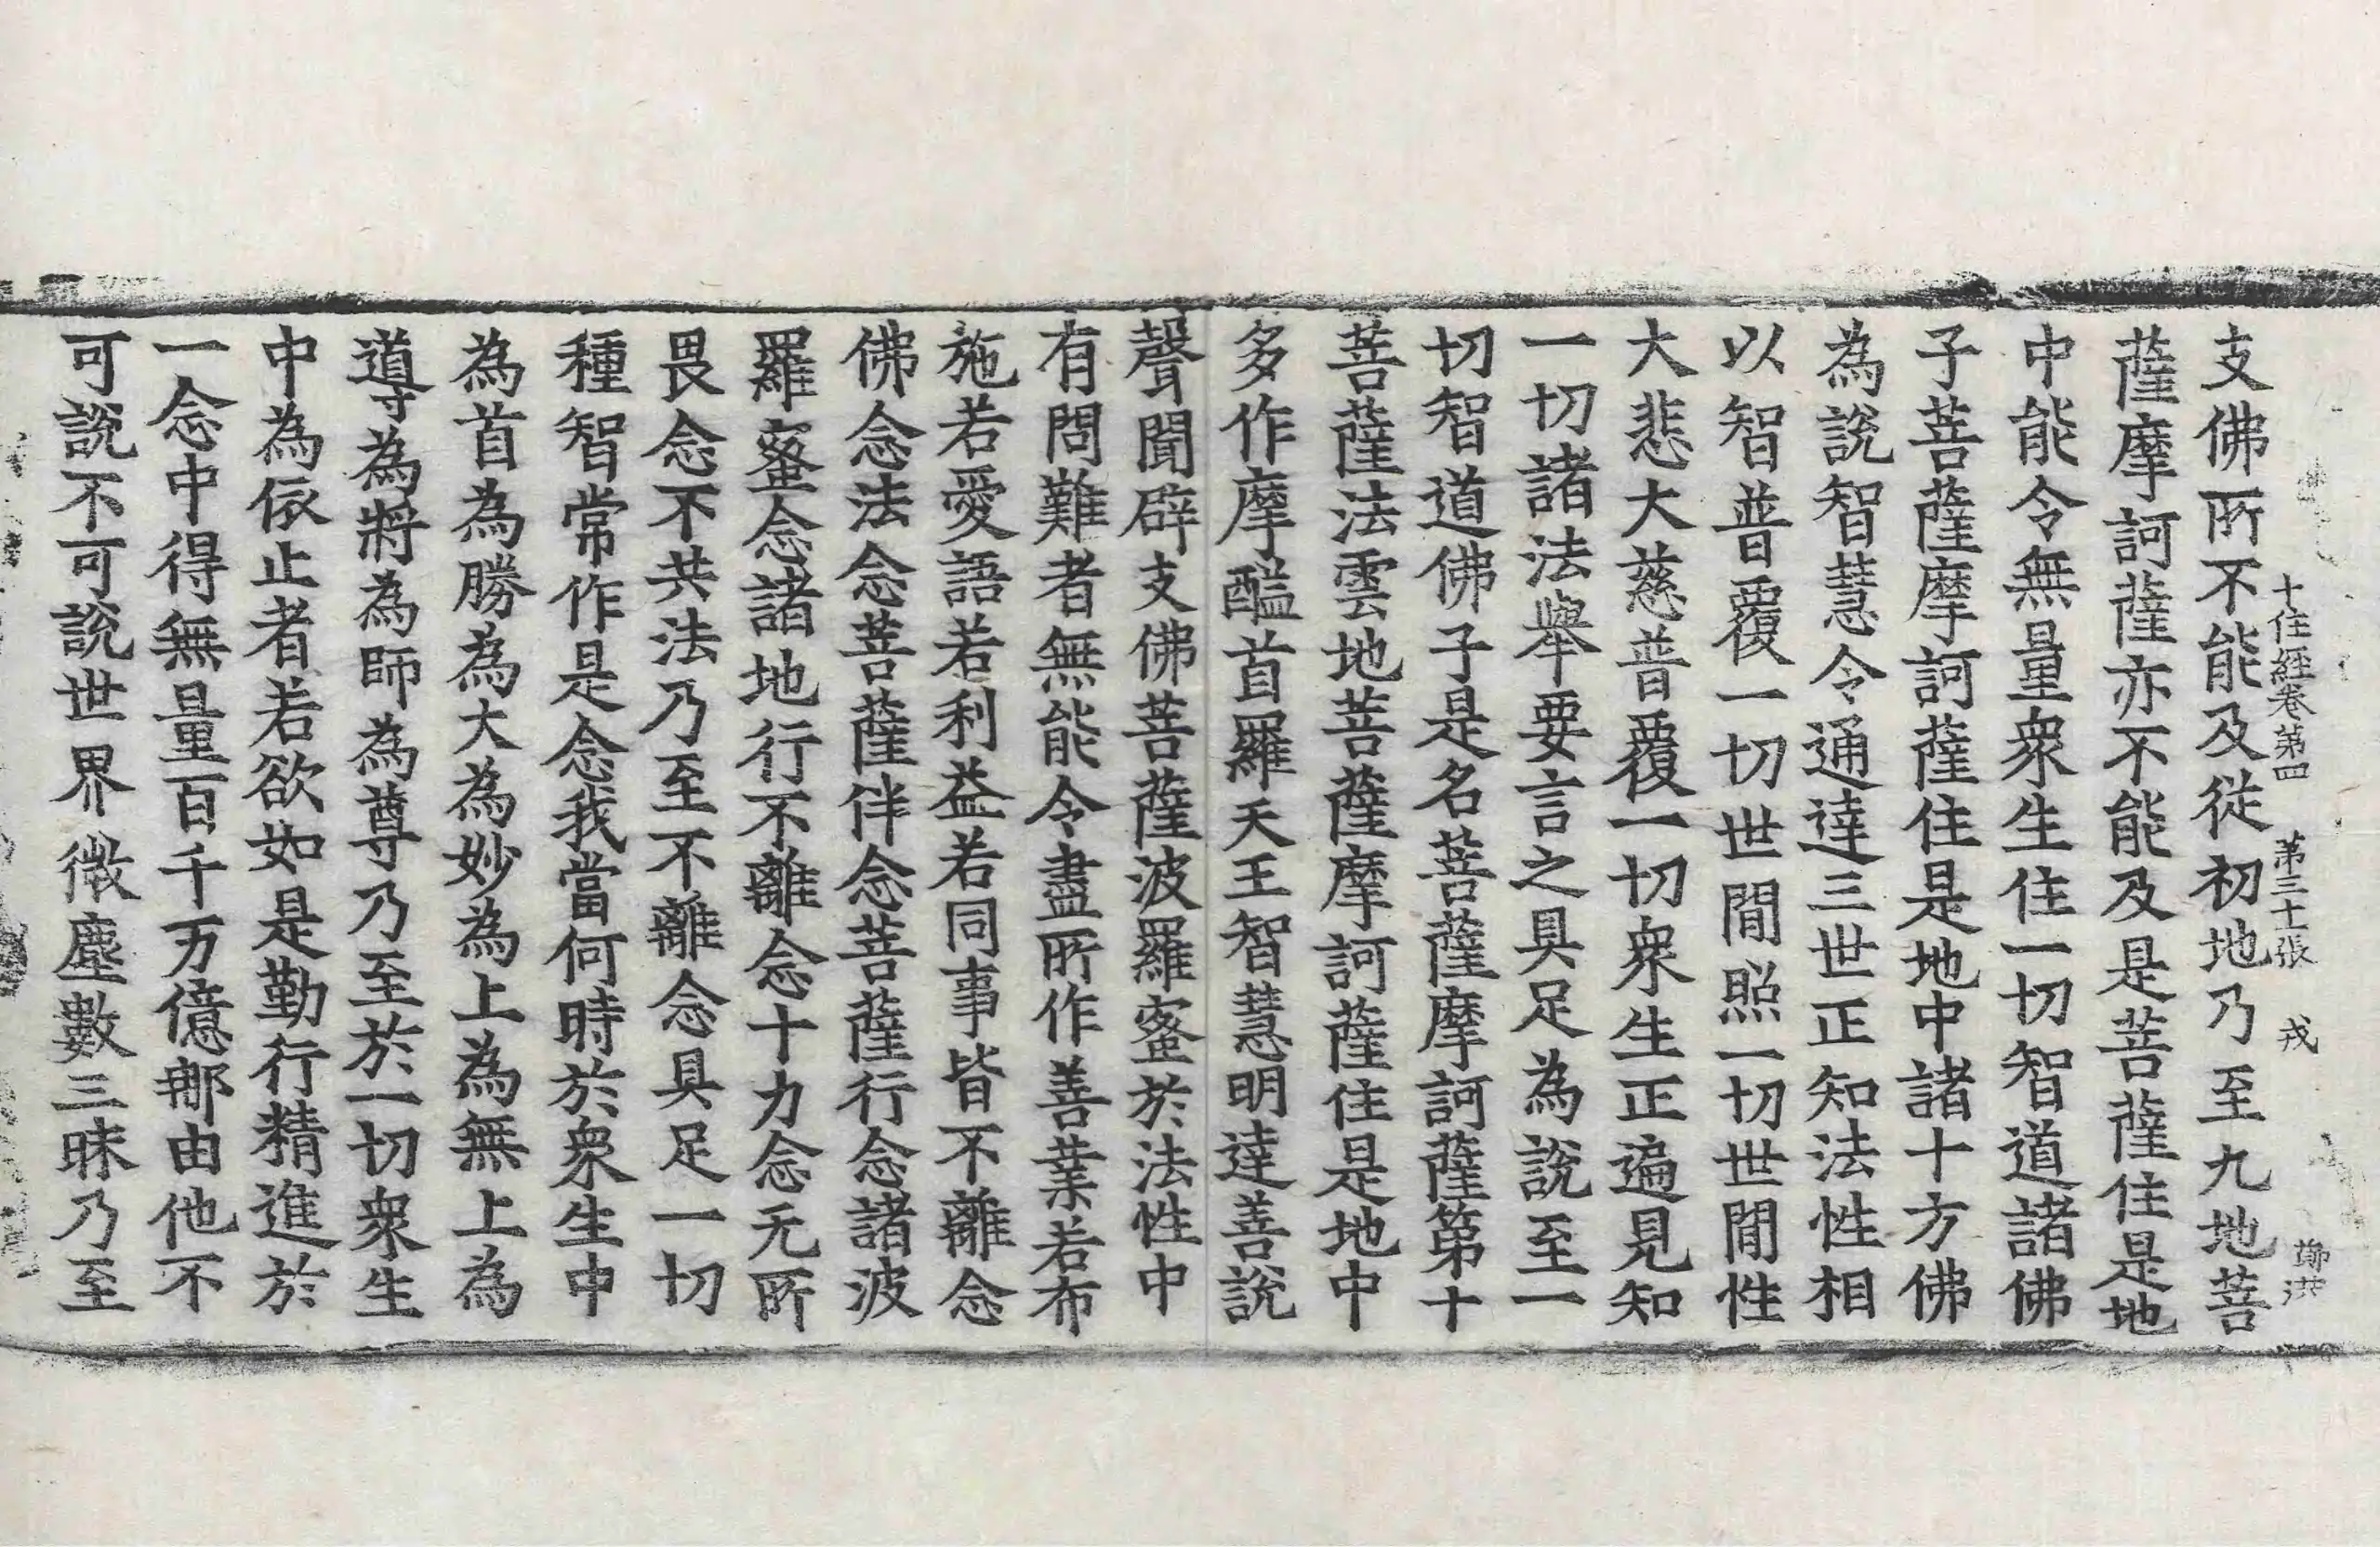 十住經卷第四 第三十張 戎 鄭洪
支佛所不能及從初地乃至九地菩
薩摩訶薩亦不能及是菩薩住是地
中能令無量衆生住一切智道諸佛
子菩薩摩訶薩住是地中諸十方佛
為說智慧令通達三世正知法性相
以智普覆一切世間照一切世間性
大悲大慈普覆一切衆生正遍見知
一切諸法舉要言之具足為說至一
切智道佛子是名菩薩摩訶薩第十
菩薩法雲地菩薩摩訶薩住是地中
多作摩醯首羅天王智慧明達善說
聲聞辟支佛菩薩波羅蜜於法性中
有問難者無能令盡所作善業若布
施若愛語若利益若同事皆不離念
佛念法念菩薩伴念菩薩行念諸波
羅蜜念諸地行不離念十力念无所
畏念不共法乃至不離念具足一切
種智常作是念我當何時於衆生中
為首為勝為大為妙為上為無上為
導為將為師為尊乃至於一切衆生
中為依止者若欲如是勤行精進於
一念中得無量百千万億那由他不
可說不可說世界微塵數三昧乃至